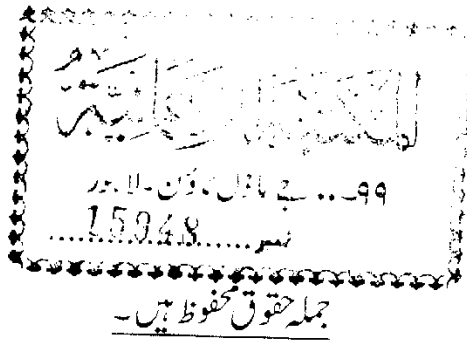 المكتبة الرحمانية
۹۹.. جے ماڈل ٹاؤن۔ لاہور
نمبر......15948......
جملہ حقوق محفوظ ہیں۔